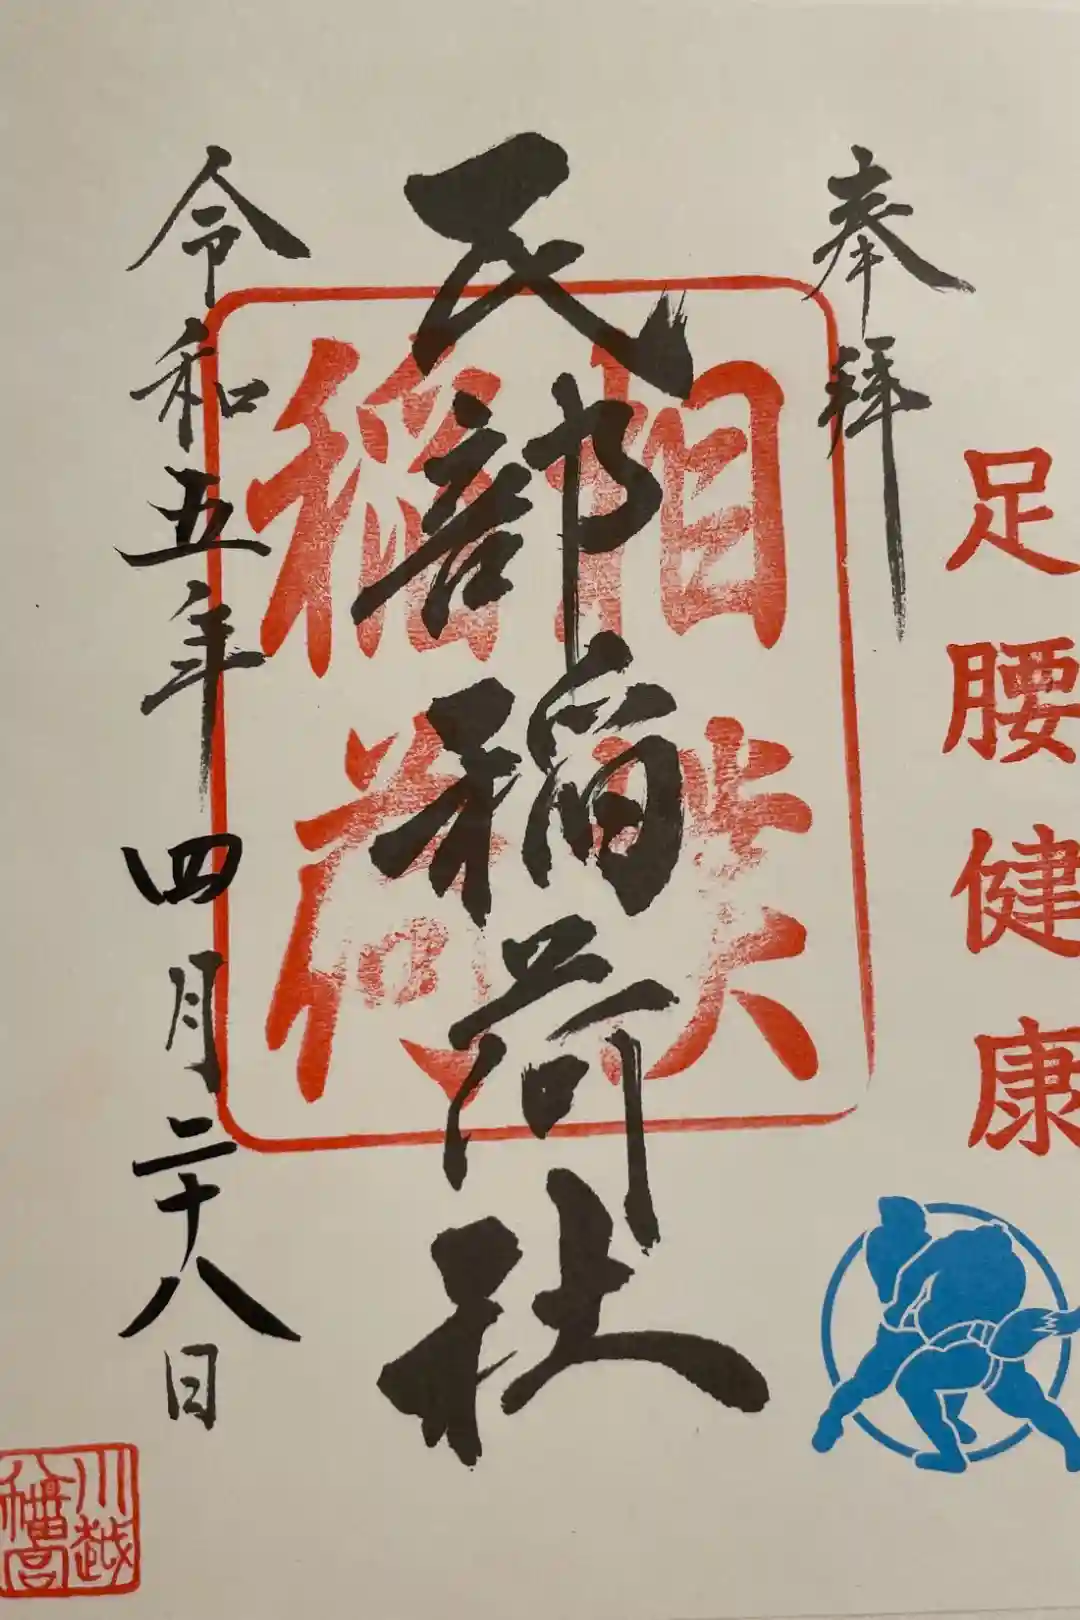 足腰健康
奉拝
民部稲荷社
相撲
稲荷
令和五年四月二十八日
川越
八幡宮